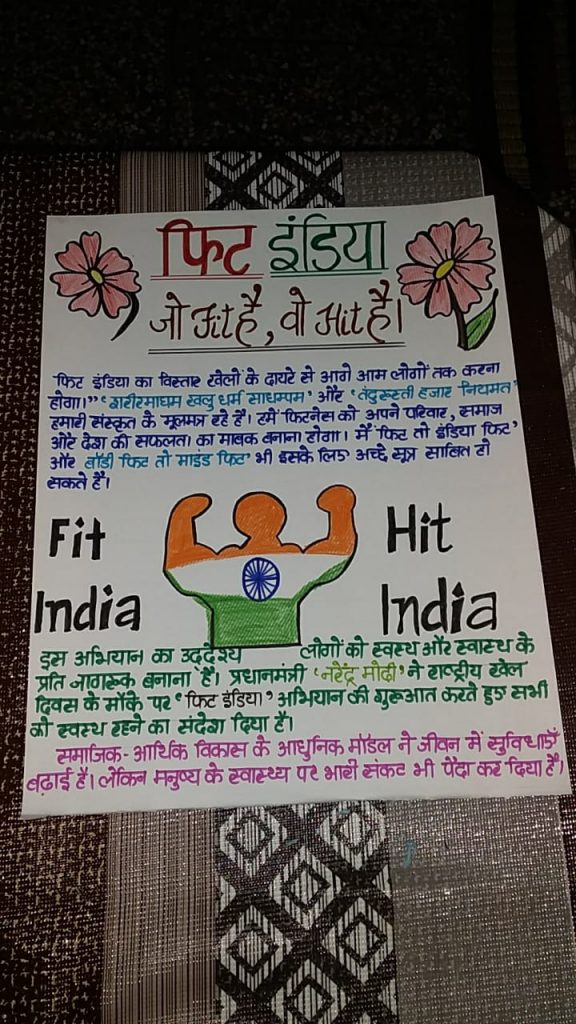 फिट इंडिया
जो Fit है, वो Hit है।
'फिट इंडिया का विस्तार खेलों के दायरे से आगे आम लोगों तक करना
होगा।" 'शरीरमाघम खलु धर्म साधम्पम' और 'तंदुरूस्ती हजार नियमत'
हमारी संस्कृत के मूलमत्र रहे है। हमें फिटनेस को अपने परिवार, समाज
और देश की सफलता का मावक बनाना होगा। 'मैं फिट तो इंडिया फिट'
और बॉडी फिट तो माइंड फिट' भी इसके लिए अच्छे सूत्र साबित हो
सकते है।
Fit Hit
India India
इस अभियान का उद्देश्य लोगों को स्वस्थ और स्वास्थ के
प्रति जागरूक बनाना है। प्रधानमंत्री 'नरेंद्र मोदी' ने राष्ट्रीय खेल
दिवस के मौके पर 'फिट इंडिया' अभियान की शुरूआत करते हुए सभी
को स्वस्थ रहने का संदेश दिया है।
समाजिक-आर्थिक विकास के आधुनिक मॉडल ने जीवन में सुविधाएँ
बढ़ाई है। लेकिन मनुष्य के स्वास्थ्य पर भारी संकट भी पैदा कर दिया है।